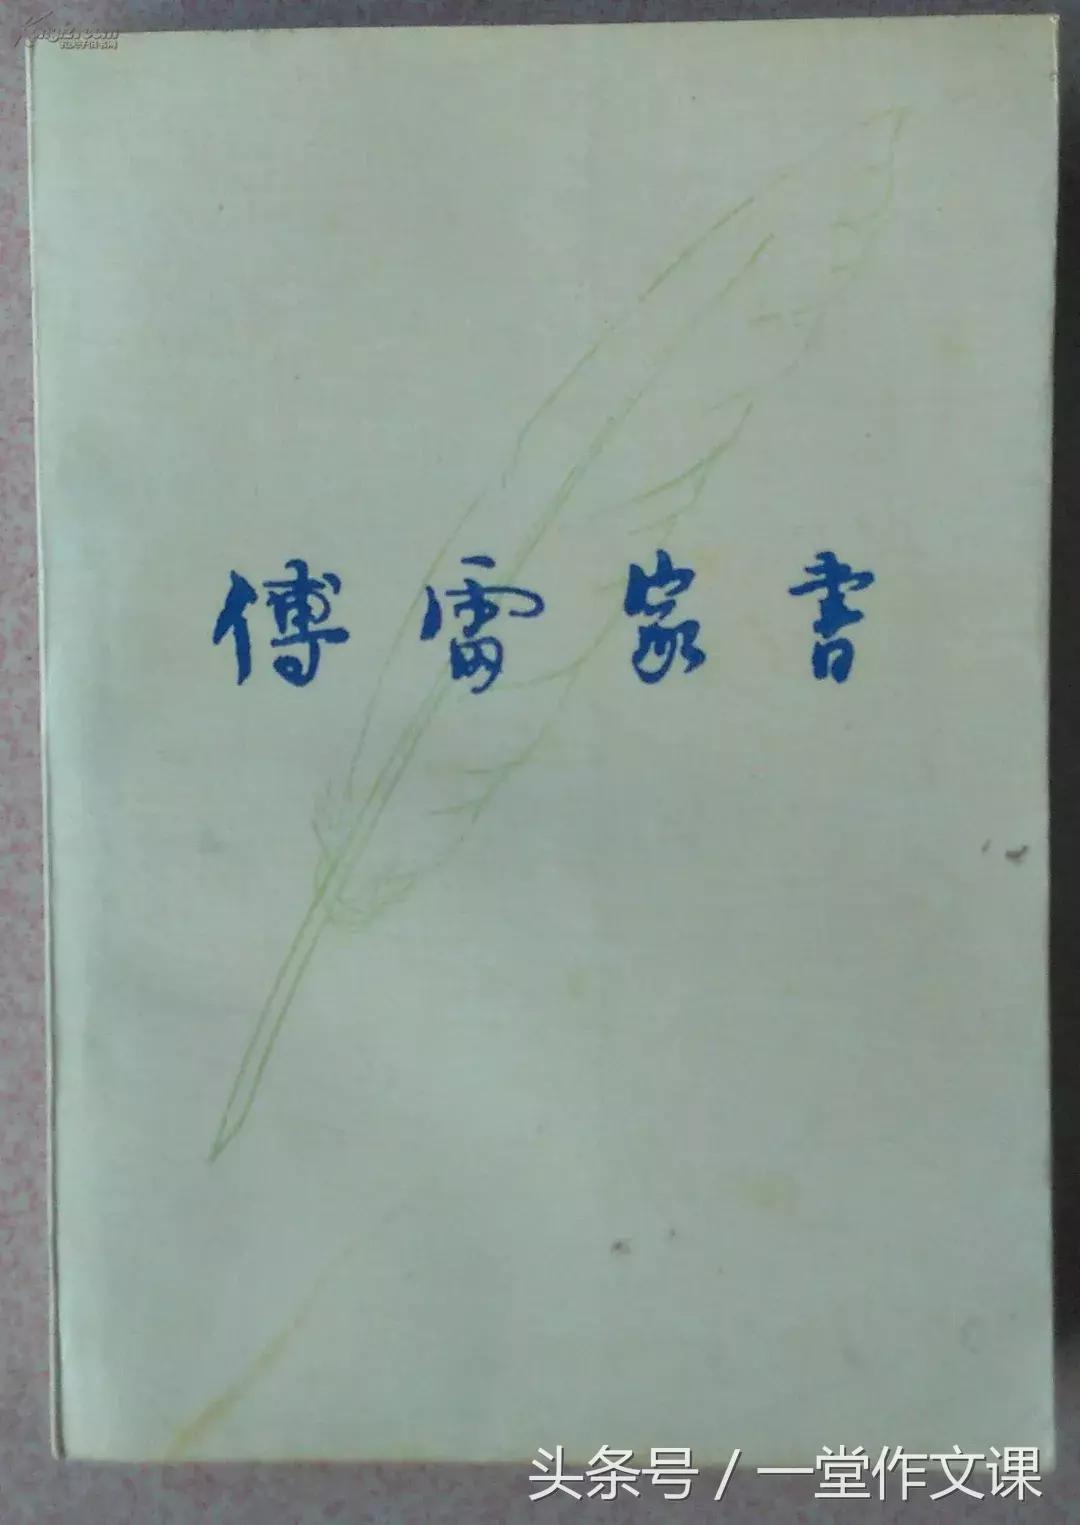 傅雷家書
头条号 / 一堂作文课